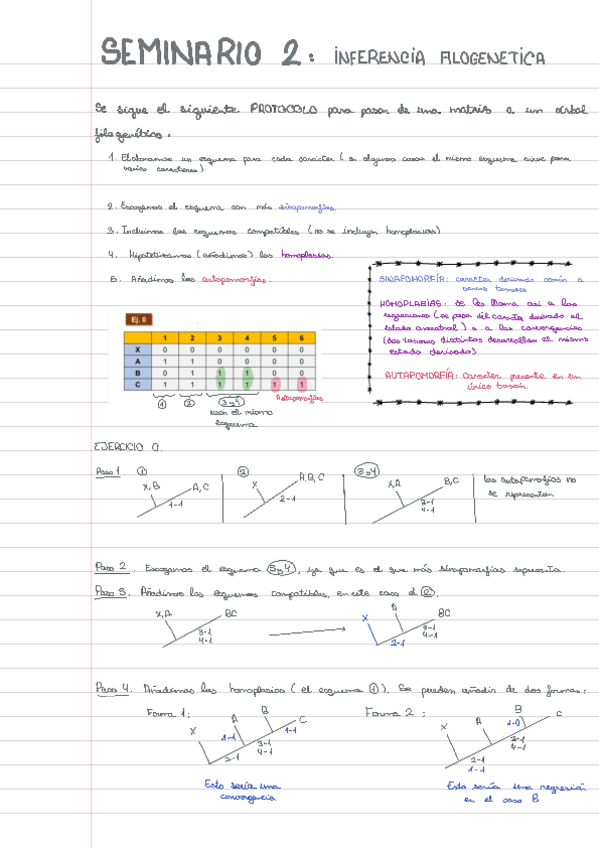 SEMINARIO 2: INFERENCIA FILOGENETICA
Se sigue el siguiente PROTOCOLO para pasar de una matriz a un árbol
filogenético:
1. Elaboramos un esquema para cada carácter (en algunos casos el mismo esquema sirve para
varios caracteres)
2. Escogemos el esquema con más sinapomorfias.
3. Incluimos los esquemas compatibles (no se incluyen homoplasias)
4. Hipotetizamos (añadimos) las homoplasias.
5. Añadimos las autapomorfias.
SINAPOMORFÍA: carácter derivado común a
varios taxones
HOMOPLASIAS: se les llama así a las
regresiones (se pasa del carácter derivado al
estado ancestral) o a las convergencias
(dos taxones distintos desarrollan el mismo
estado derivado)
AUTAPOMORFÍA: Carácter presente en un
único taxón
Ej. 0
1 2 3 4 5 6
X 0 0 0 0 0 0
A 1 1 0 0 0 0
B 0 1 1 1 0 0
C 1 1 1 1 1 1
1 2 3 y 4 Autapomorfias
usan el mismo
esquema
EJERCICIO 0.
Paso 1 1 2 3 y 4
X, B A, C X A, B, C X, A B, C
1-1 2-1 3-1
4-1
las autapomorfias no
se representan
Paso 2. Escogemos el esquema 3 y 4, ya que es el que más sinapomorfias representa.
Paso 3. Añadimos los esquemas compatibles, en este caso el 2.
X, A BC X A BC
3-1 3-1
4-1 4-1
2-1
Paso 4. Añadimos las homoplasias (el esquema 1). Se pueden añadir de dos formas:
Forma 1: Forma 2:
X A B C X A B C
1-1 1-1 1-0
3-1
4-1
2-1
2-1
4-1
2-1
1-1
Esto sería una
convergencia
Esto sería una regresión
en el caso B